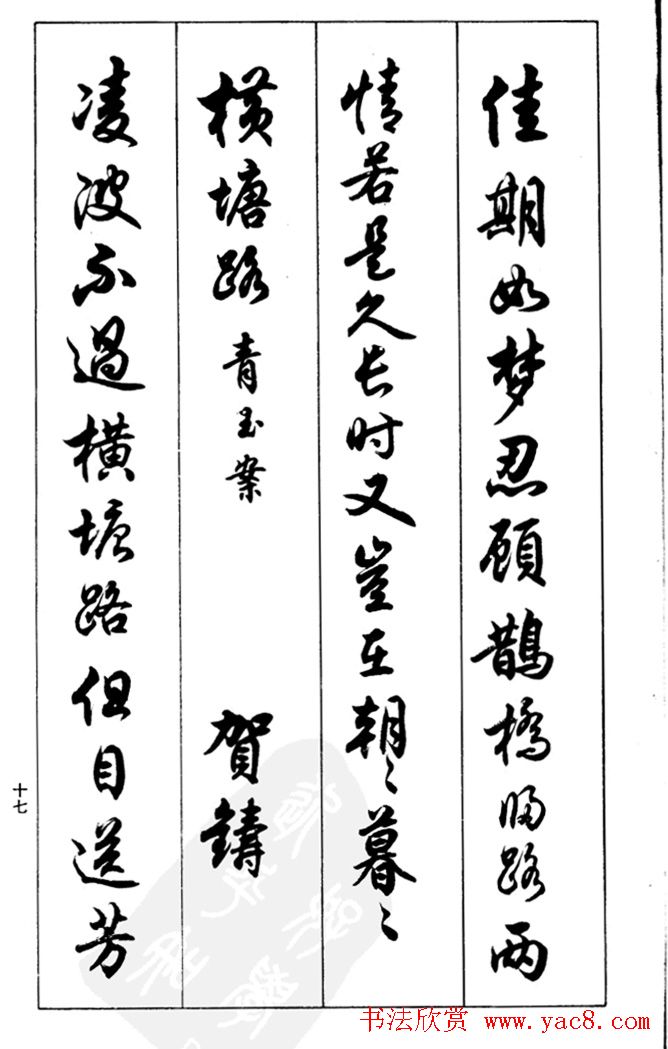 佳期如梦忍顾鹊橋归路两
情若是久长时又岂在朝〻暮〻
横塘路 青玉案 賀鑄
凌波不過横塘路但目送芳
十七
书法欣赏 www.yac8.com